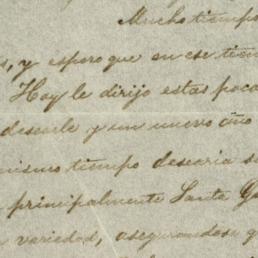 Mucho tiempo
s, y espero que en ese tiem
Hoy le dirijo estas poca
desearle y un nuevo año
mismo tiempo desearia s
principalmente Santa
variedad, asegurandose q